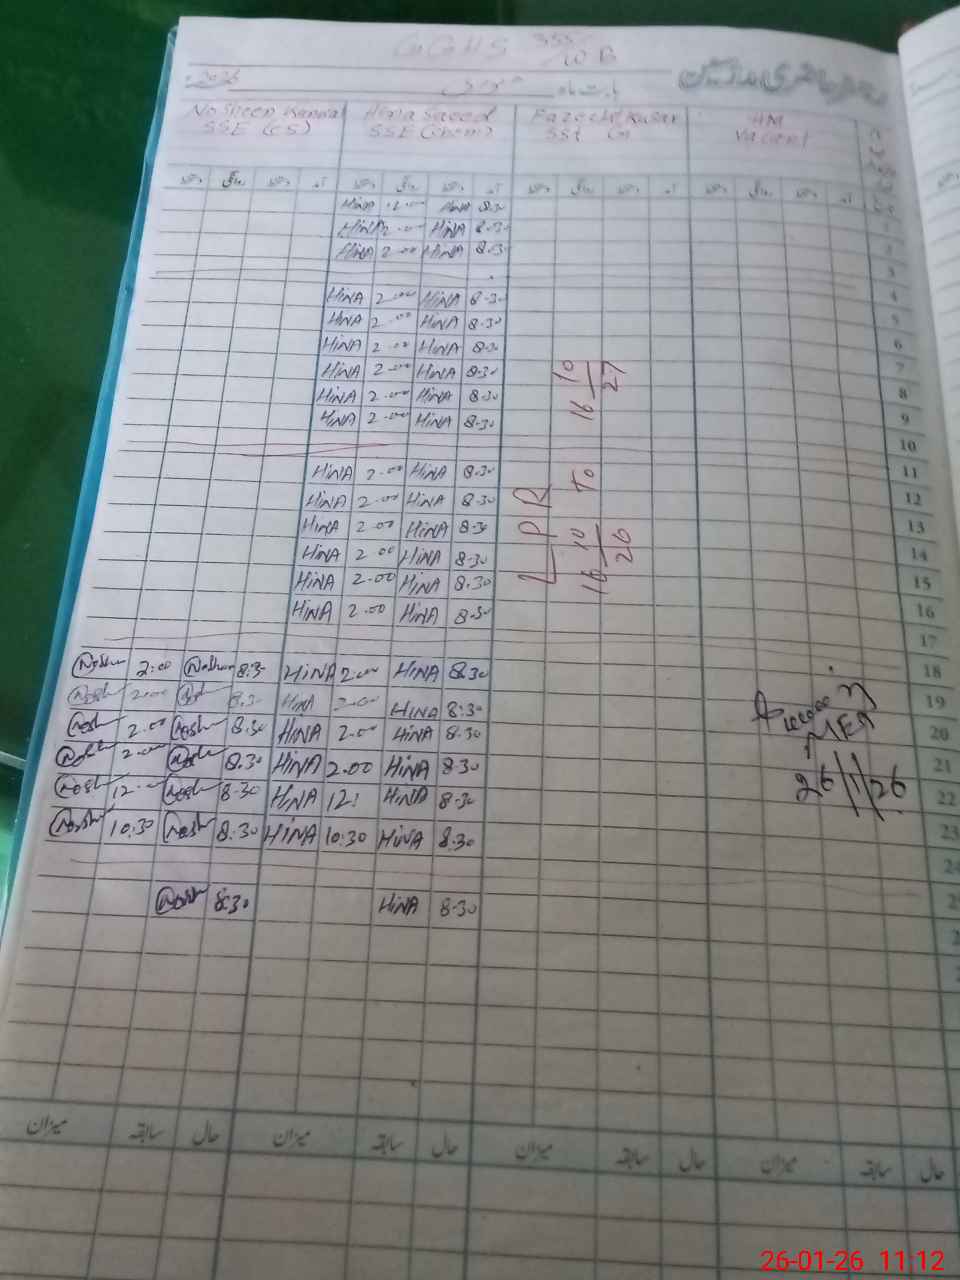 GGHS 355/WB
رجسٹر حاضری مدرسین
2026 جنوری بابت ماہ
Nosheen Kanwal Hina Saeed Fazeelat Kusar HM
SSE (CS) SSE (Chem) SST G Vacent
دستخط روانگی دستخط آمد دستخط روانگی دستخط آمد دستخط روانگی دستخط آمد دستخط روانگی دستخط آمد
HiNA 2.00 HiNA 8.30 1
HiNA 2.00 HiNA 8.30 2
HiNA 2.00 HiNA 8.30 3
4
HiNA 2.00 HiNA 8.30 5
HiNA 2.00 HiNA 8.30 6
HiNA 2.00 HiNA 8.30 7
HiNA 2.00 HiNA 8.30 8
HiNA 2.00 HiNA 8.30 9
HiNA 2.00 HiNA 8.30 10
11
HiNA 2.00 HiNA 8.30 12
HiNA 2.00 HiNA 8.30 13
HiNA 2.00 HiNA 8.30 14
HiNA 2.00 HiNA 8.30 15
HiNA 2.00 HiNA 8.30 16
HiNA 2.00 HiNA 8.30 17
LPR 16/10/26 To 16/10/27
Nosh 2:00 Nosh 8:30 HiNA 2.00 HiNA 8.30 18
Nosh 2:00 Nosh 8:30 HiNA 2.00 HiNA 8:30 19
Nosh 2.00 Nosh 8:30 HiNA 2.00 HiNA 8.30 20
Nosh 2:00 Nosh 8:30 HiNA 2.00 HiNA 8.30 21
Nosh 12:00 Nosh 8:30 HiNA 12: HiNA 8.30 22
Nosh 10:30 Nosh 8:30 HiNA 10:30 HiNA 8.30 23
24
Nosh 8:30 HiNA 8.30
MEA
26/1/26
میزان سابقہ حال میزان سابقہ حال میزان سابقہ حال میزان سابقہ حال
26-01-26 11:12